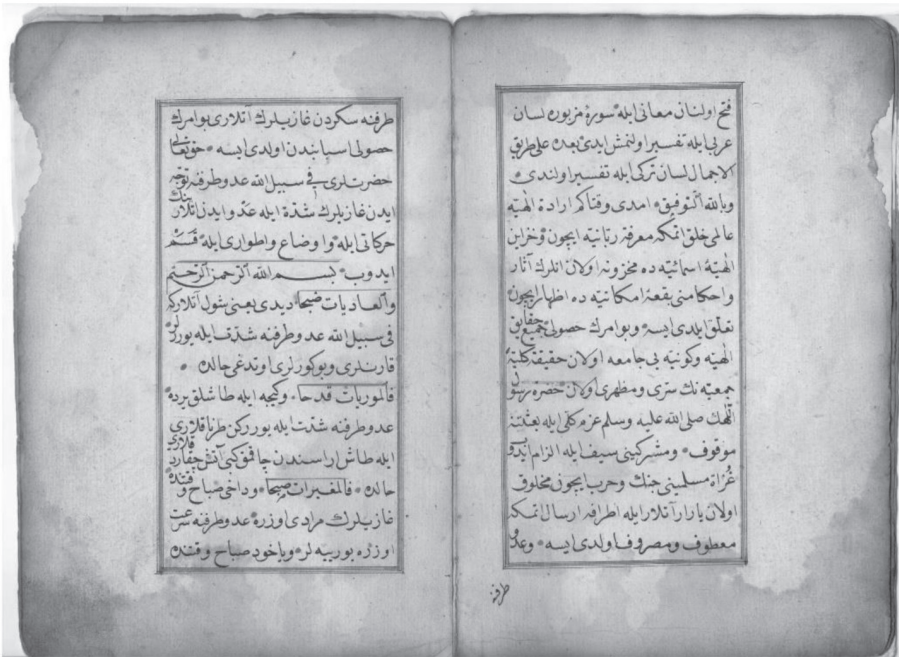 فتح اولنان معانی ایله سورۀ مزبوره لسان
عربی ایله تفسیر اولنمش ایدی بعده علی طریق
الاجمال لسان ترکی ایله تفسیر اولندی
وبالله التوفیق امدی وقتاکم ارادۀ الهیه
عالمی خلق اتمکه معرفۀ ربانیه ایچون وخزاین
الهیۀ اسمائیه ده مخزونه اولان انلرك آثار
واحکامنی بقعۀ امکانیه ده اظهار ایچون
تعلق ایلدی ایسه وبو امرك حصولی جمیع حقایق
الهیه وکونیه یی جامعه اولان حقیقۀ کلیۀ
جمعیه نك سری ومظهری اولان حضرۀ رسول
اللهك صلی الله علیه وسلم عزم کلی ایله بعثتنه
موقوف ومشرکینی سیف ایله الزام ایدوب
غزاة مسلمینی جنك وحرب ایچون مخلوق
اولان یارار آتلار ایله اطرافه ارسال اتمکه
معطوف ومصروف اولدی ایسه وعدو
طرفنه
طرفنه سکردن غازیلرك آتلاری بو امرك
حصولی اسبابندن اولدی ایسه حق تعالی
حضرتلری فی سبیل الله عدو طرفنه توجه
ایدن غازیلرك شدة ایله عدو ایدن اتلارینك
حرکاتی ایله واوضاع واطواری ایله قسم
ایدوب بسم الله الرحمن الرحیم
والعادیات ضبحا دیدی یعنی شول آتلار که
فی سبیل الله عدو طرفنه شدت ایله یورلر
قارنلری وبوکورلری اوتدغی حالده
فالموریات قدحا وکیجه ایله طاشلق یرده
عدو طرفنه شدت ایله یوررکن طرناقلاری
ایله طاش اراسندن چاقمق کبی آتش چقارد
حالده فالمغیرات صبحا وداخی صباح وقتنده
غازیلرك مرادی اوزره عدو طرفنه سرعت
اوزره یوریه لر ویاخود صباح وقتنده